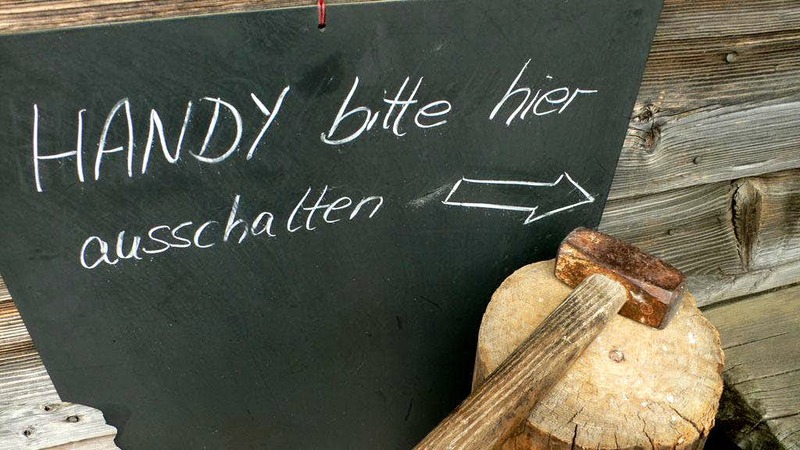 HANDY bitte hier
ausschalten